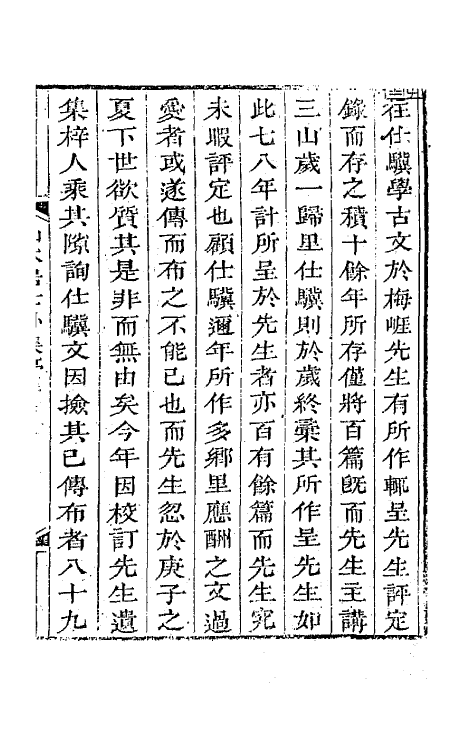 往仕驥學古文於梅崕先生有所作輒呈先生評定
錄而存之積十餘年所存僅將百篇旣而先生主講
三山歲一歸里仕驥則於歲終彚其所作呈先生如
此七八年計所呈於先生者亦百有餘篇而先生究
未暇評定也顧仕驥邇年所作多鄉里應酬之文過
愛者或遂傳而布之不能已也而先生忽於庚子之
夏下世欲質其是非而無由矣今年因校訂先生遺
集梓人乘其隙詢仕驥文因撿其已傳布者八十九